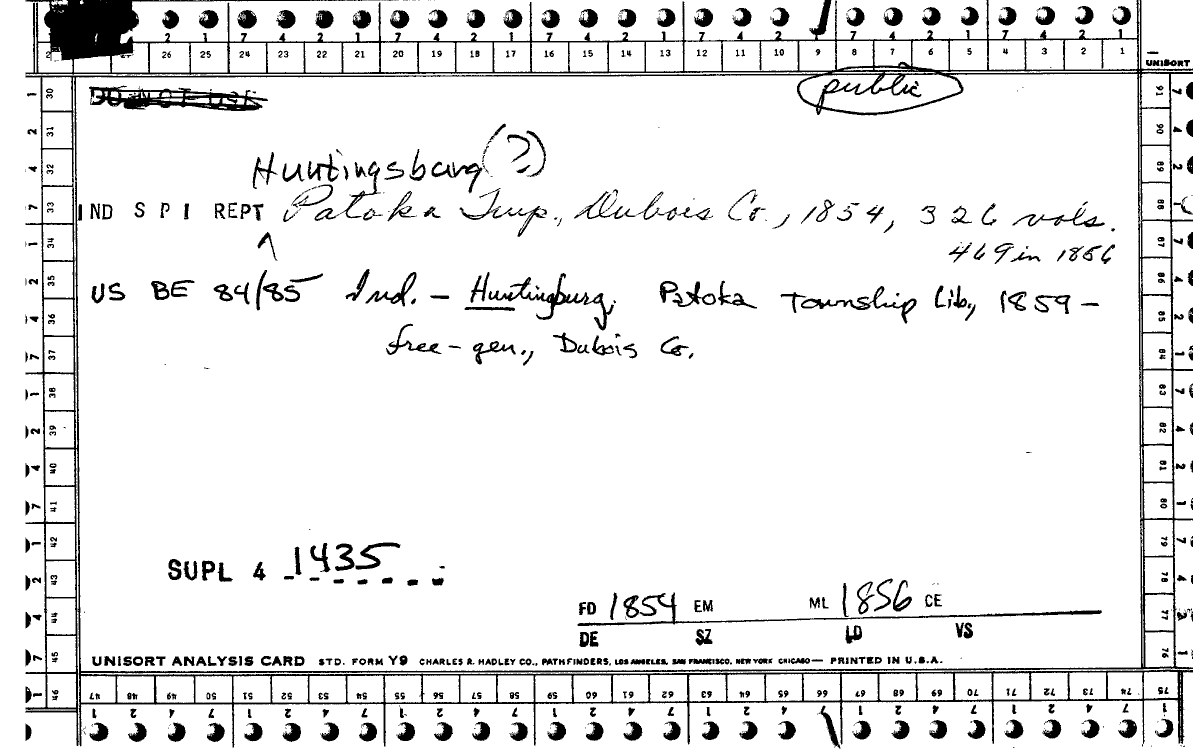 2 1 7 4 2 1 7 4 2 1 7 4 2 1 7 4 2 1 7 4 2 1 7 4 2 1
26 25 24 23 22 21 20 19 18 17 16 15 14 13 12 11 10 9 8 7 6 5 4 3 2 1
UNISORT
DO NOT USE
public
Huntingsburg (?)
IND S P I REPT Patoka Twp., Dubois Co., 1854, 326 vols.
^
469 in 1856
US BE 84/85 Ind. – Huntingburg, Patoka Township Lib., 1859 –
free-gen., Dubois Co.
SUPL 4 1435
FD 1854 EM ML 1856 CE
DE SZ LD VS
UNISORT ANALYSIS CARD STD. FORM Y9 CHARLES R. HADLEY CO., PATHFINDERS, LOS ANGELES, SAN FRANCISCO, NEW YORK CHICAGO — PRINTED IN U.S.A.
47 48 49 50 51 52 53 54 55 56 57 58 59 60 61 62 63 64 65 66 67 68 69 70 71 72 73 74 75